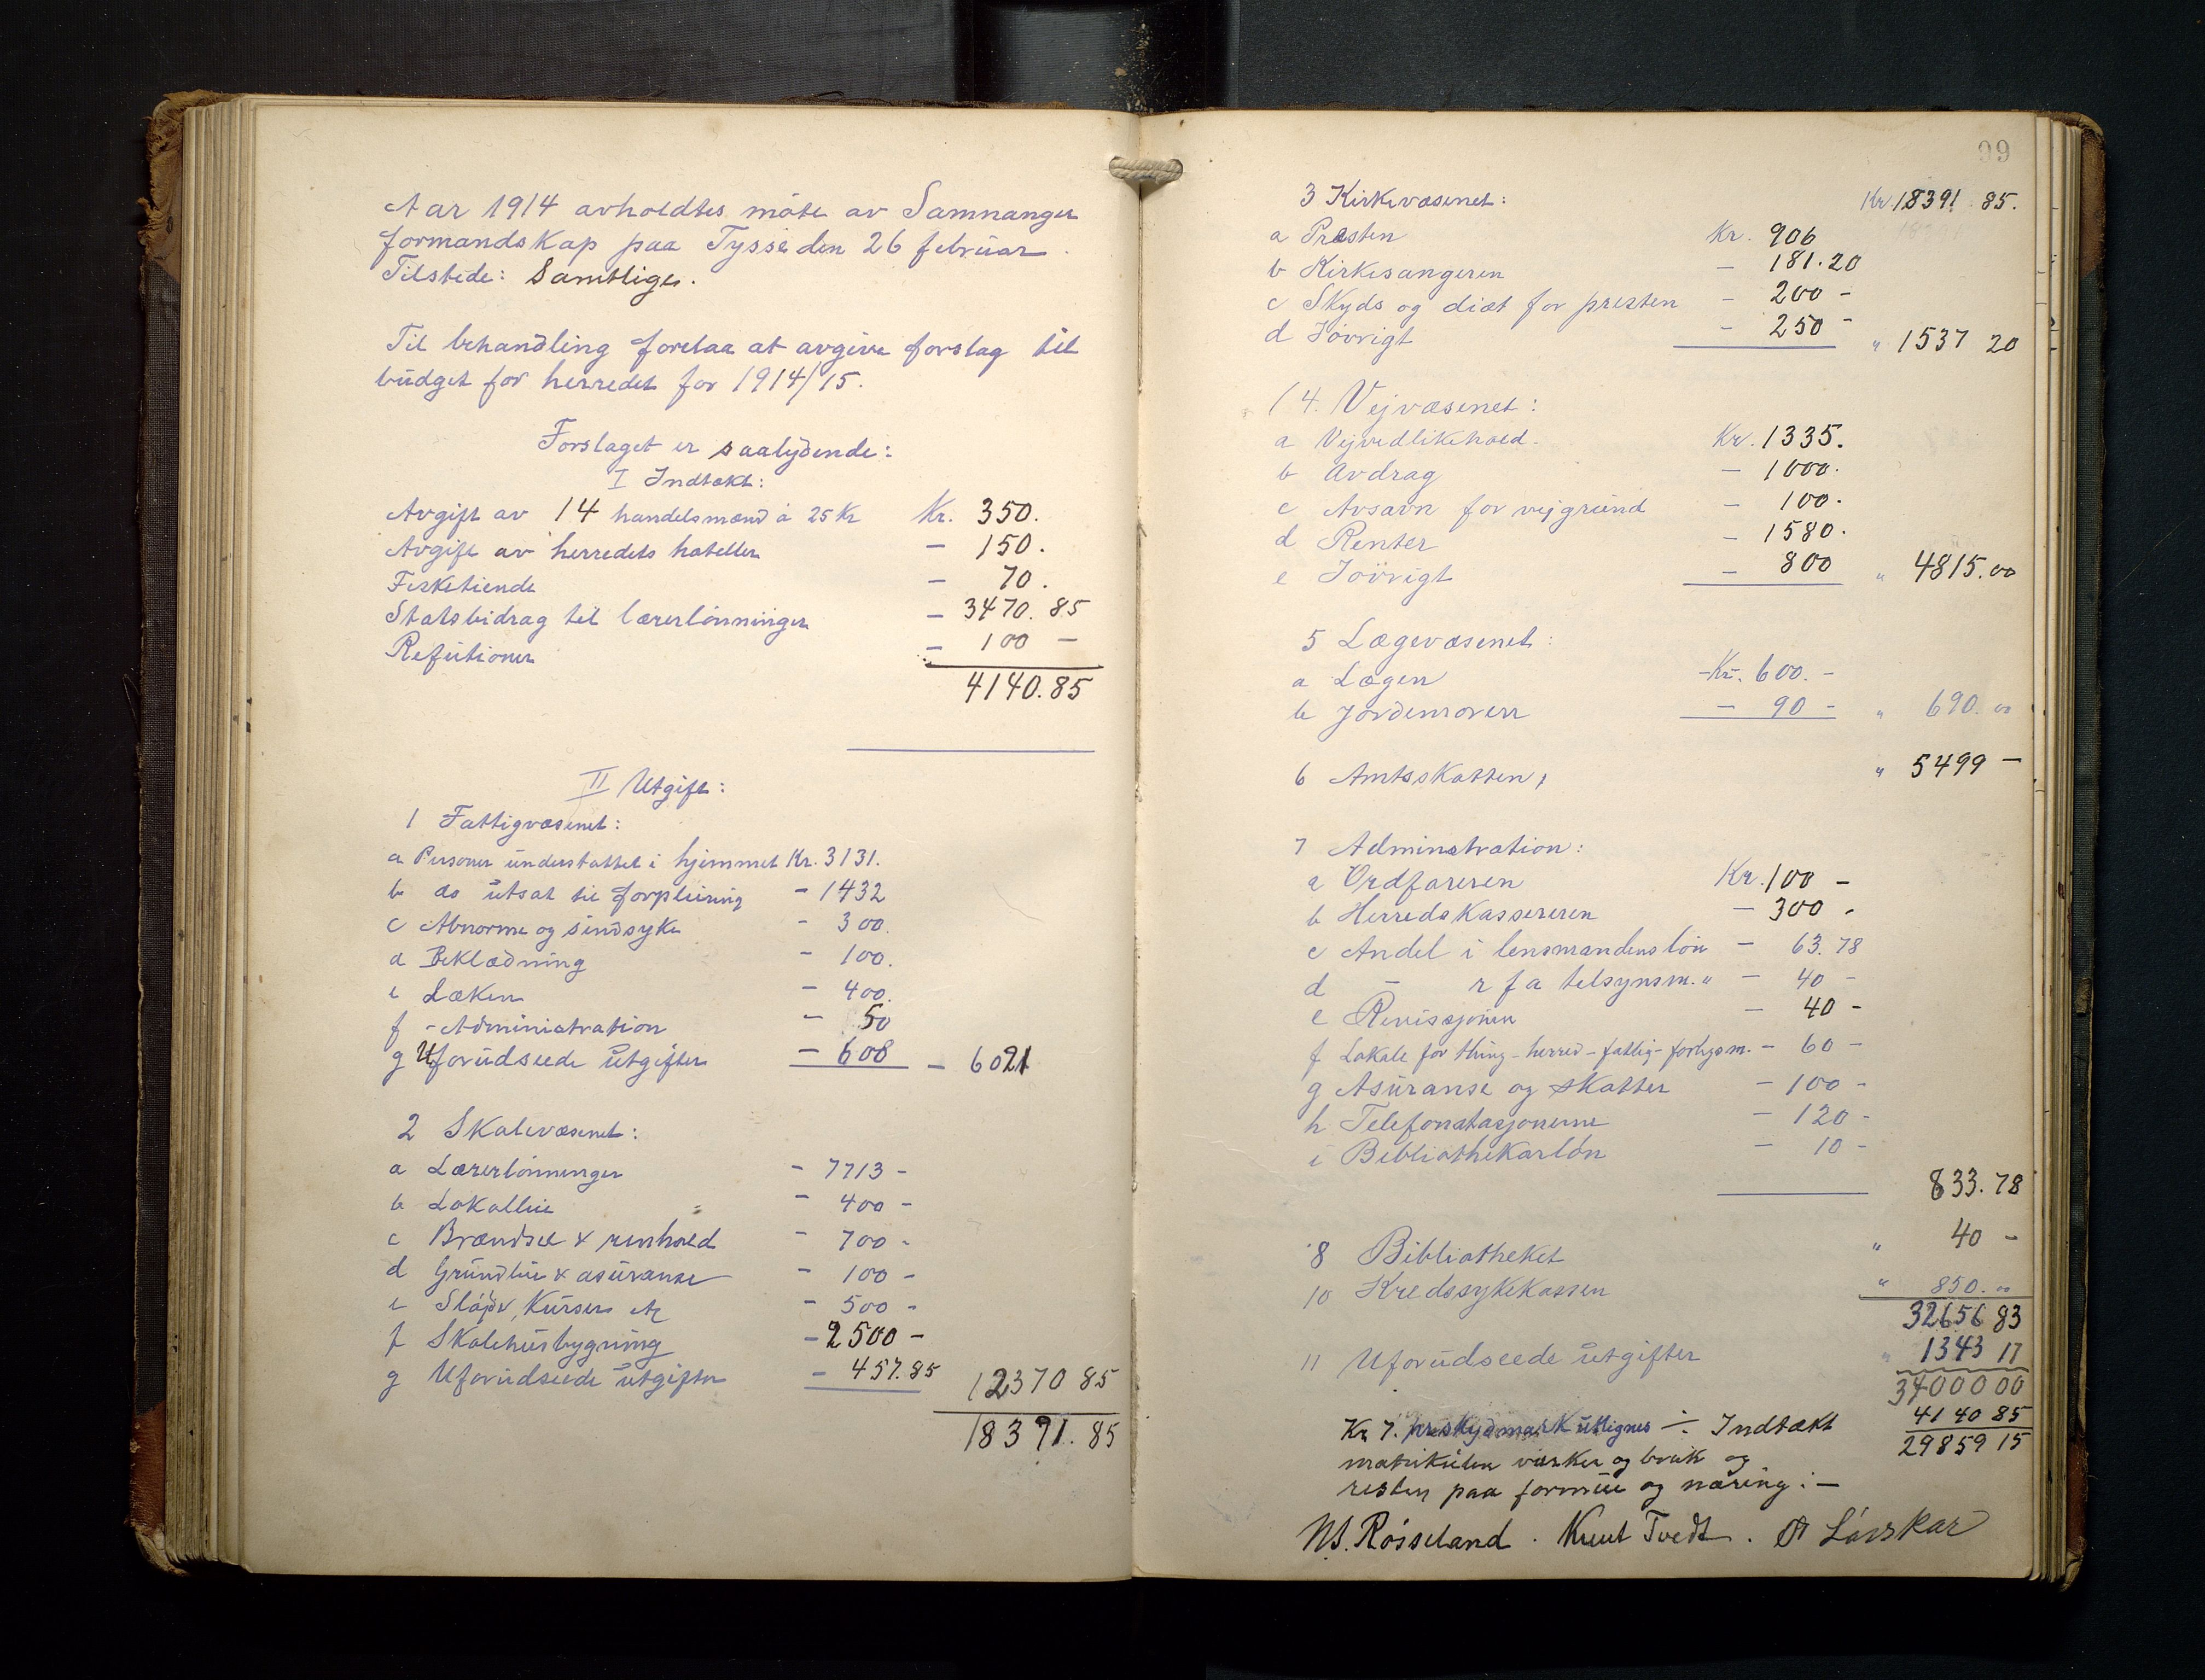 Aar 1914 avholdtes møte av Samnanger
formandskap paa Tysse den 26 februar.
Tilstede: Samtlige.
Til behandling forelaa at avgive forslag til
budget for herredet for 1914/15.
Forslaget er saalydende:
I Indtækt:
Avgift av 14 handelsmænd á 25 Kr Kr. 350.
Avgift av herredets hoteller - 150.
Fisketiende - 70.
Statsbidrag til lærerlønninger - 3470.85
Refutioner - 100 -
4140.85
II Utgift:
1 Fattigvæsenet:
a Personer understøttet i hjemmet Kr. 3131.
b do utsat til forpleining - 1432
c Abnorme og sindsyke - 300.
d Beklædning - 100.
e Læken - 400.
f Administration - 50
g Uforudseede utgifter - 608 - 6021
2 Skolevæsenet:
a Lærerlønninger - 7713 -
b Lokalleie - 400 -
c Brændsel & renhold - 700 -
d Grundleie & asuranse - 100 -
e Sløjd, Kurser etc - 500 -
f Skolehusbygning - 2500 -
g Uforudseede utgifter - 457.85 12370 85
18391.85
99
3 Kirkevæsenet: Kr. 18391 85.
a Præsten Kr. 906
b Kirkesangeren - 181.20
c Skyds og diæt for presten - 200 -
d Iøvrigt - 250 - " 1537 20
4. Vejvæsenet:
a Vejvedlikehold. Kr. 1335.
b Avdrag - 1000.
c Avsavn for vejgrund - 100.
d Renter - 1580.
e Iøvrigt - 800 " 4815.00
5 Lægevæsenet:
a Lægen Kr. 600. -
b Jordemoren - 90 - " 690.00
6 Amtsskatten, " 5499 -
7 Adminstration:
a Ordføreren Kr. 100 -
b Herredskassereren - 300 -
c Andel i lensmandensløn - 63.78
d - r f a telsynsm. " - 40 -
e Revissjonen - 40 -
f Lokale for thing - herred - fattig - forligsm. - 60 -
g Asuranse og skatter - 100 -
h Telefonstasjonerne - 120 -
i Bibliothekarløn - 10 -
833.78
8 Bibliotheket " 40 -
10 Kredssykekassen " 850.00
32656 83
11 Uforudseede utgifter " 1343 17
34000 00
Kr 7. pr skyldmark utlignes ÷ Indtækt 4140 85
29859 15
matrikulen værker og bruk og
resten paa formue og næring: -
N.S. Røsseland. Knut Tvedt.